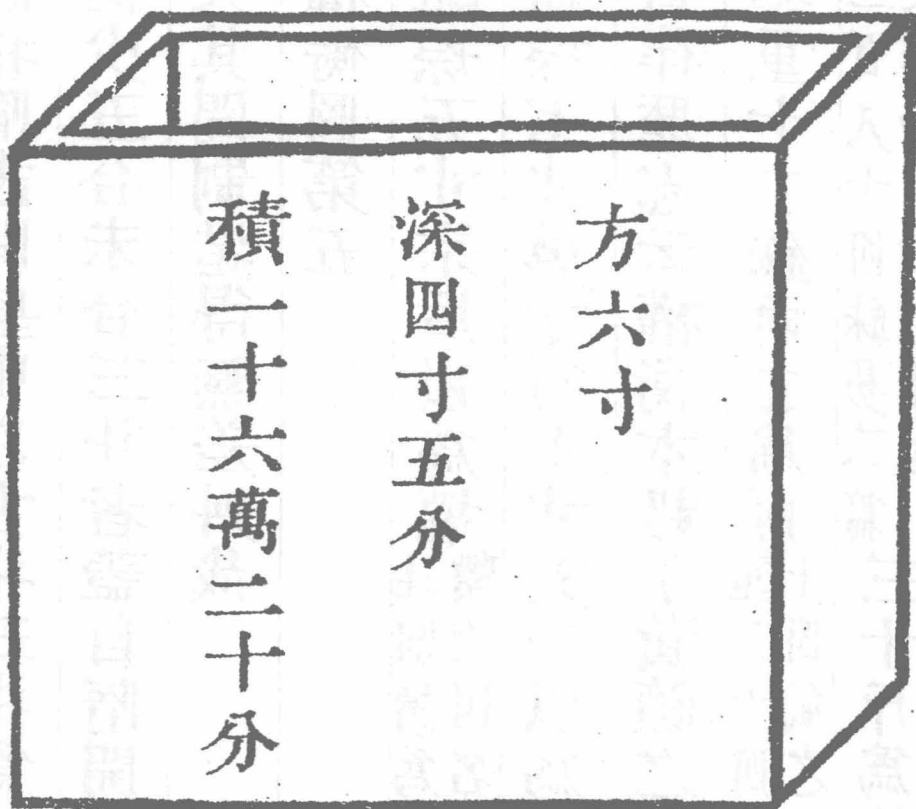 方六寸
深四寸五分
積一十六萬二十分